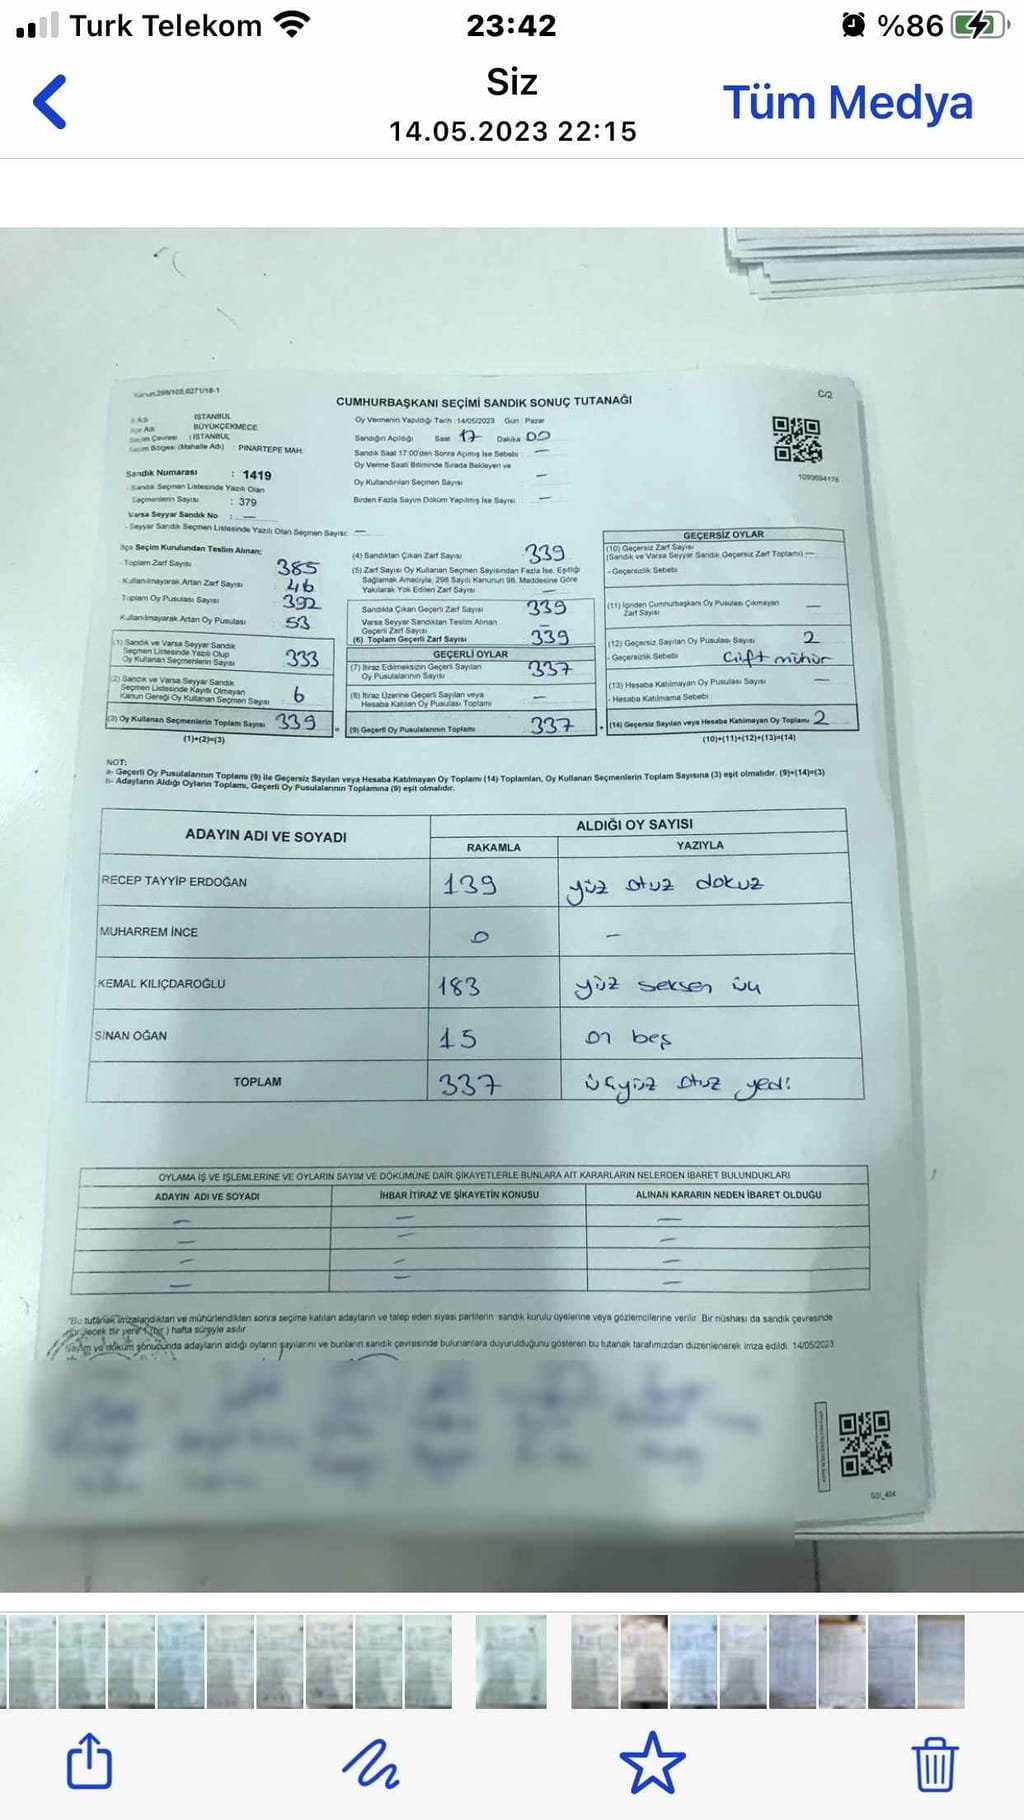 Turk Telekom
23:42
%86
Siz
14.05.2023 22:15
Tüm Medya
C/2
CUMHURBAŞKANI SEÇİMİ SANDIK SONUÇ TUTANAĞI
İSTANBUL
BÜYÜKÇEKMECE
Seçim Çevresi : İSTANBUL
Seçim Bölgesi (Mahalle Adı) : PINARTEPE MAH.
Sandık Numarası : 1419
Sandık Seçmen Listesinde Yazılı Olan
Seçmenlerin Sayısı : 379
Varsa Seyyar Sandık No : —
- Seyyar Sandık Seçmen Listesinde Yazılı Olan Seçmen Sayısı: —
Oy Vermenin Yapıldığı Tarih : 14/05/2023 Gün : Pazar
Sandığın Açıldığı Saat 17 Dakika 00
Sandık Saat 17:00'den Sonra Açımış İse Sebebi —
Oy Verme Saati Bitiminde Sırada Bekleyen ve
Oy Kullandırılan Seçmen Sayısı —
Birden Fazla Sayım Döküm Yapılmış İse Sayısı —
1093694176
İlçe Seçim Kurulundan Teslim Alınan;
Toplam Zarf Sayısı : 385
Kullanılmayarak Artan Zarf Sayısı : 46
Toplam Oy Pusulası Sayısı : 392
Kullanılmayarak Artan Oy Pusulası : 53
(1) Sandık ve Varsa Seyyar Sandık
Seçmen Listesinde Yazılı Olup
Oy Kullanan Seçmenlerin Sayısı 333
(2) Sandık ve Varsa Seyyar Sandık
Seçmen Listesinde Kayıtlı Olmayan
Kanun Gereği Oy Kullanan Seçmen Sayısı 6
(3) Oy Kullanan Seçmenlerin Toplam Sayısı 339
(1)+(2)=(3)
(4) Sandıktan Çıkan Zarf Sayısı 339
(5) Zarf Sayısı Oy Kullanan Seçmen Sayısından Fazla İse, Eşitliği
Sağlamak Amacıyla, 298 Sayılı Kanunun 98. Maddesine Göre
Yakılarak Yok Edilen Zarf Sayısı —
Sandıkta Çıkan Geçerli Zarf Sayısı 339
Varsa Seyyar Sandıktan Teslim Alınan
Geçerli Zarf Sayısı —
(6) Toplam Geçerli Zarf Sayısı 339
GEÇERLİ OYLAR
(7) İtiraz Edilmeksizin Geçerli Sayılan
Oy Pusulalarının Sayısı 337
(8) İtiraz Üzerine Geçerli Sayılan veya
Hesaba Katılan Oy Pusulası Toplamı —
(9) Geçerli Oy Pusulalarının Toplamı 337
GEÇERSİZ OYLAR
(10) Geçersiz Zarf Sayısı
(Sandık ve Varsa Seyyar Sandık Geçersiz Zarf Toplamı) —
- Geçersizlik Sebebi
(11) İçinden Cumhurbaşkanı Oy Pusulası Çıkmayan
Zarf Sayısı —
(12) Geçersiz Sayılan Oy Pusulası Sayısı 2
- Geçersizlik Sebebi Çift mühür
(13) Hesaba Katılmayan Oy Pusulası Sayısı —
- Hesaba Katılmama Sebebi
(14) Geçersiz Sayılan veya Hesaba Katılmayan Oy Toplamı 2
(10)+(11)+(12)+(13)=(14)
NOT:
a- Geçerli Oy Pusulalarının Toplamı (9) ile Geçersiz Sayılan veya Hesaba Katılmayan Oy Toplamı (14) Toplamları, Oy Kullanan Seçmenlerin Toplam Sayısına (3) eşit olmalıdır. (9)+(14)=(3)
b- Adayların Aldığı Oyların Toplamı, Geçerli Oy Pusulalarının Toplamına (9) eşit olmalıdır.
ADAYIN ADI VE SOYADI
ALDIĞI OY SAYISI
RAKAMLA YAZIYLA
RECEP TAYYİP ERDOĞAN 139 yüz otuz dokuz
MUHARREM İNCE 0 —
KEMAL KILIÇDAROĞLU 183 yüz seksen üç
SİNAN OĞAN 15 on beş
TOPLAM 337 üçyüz otuz yedi
OYLAMA İŞ VE İŞLEMLERİNE VE OYLARIN SAYIM VE DÖKÜMÜNE DAİR ŞİKAYETLERLE BUNLARA AİT KARARLARIN NELERDEN İBARET BULUNDUKLARI
ADAYIN ADI VE SOYADI İHBAR İTİRAZ VE ŞİKAYETİN KONUSU ALINAN KARARIN NEDEN İBARET OLDUĞU
— — —
— — —
— — —
— — —
"Bu tutanak imzalandıktan ve mühürlendikten sonra seçime katılan adayların ve talep eden siyasi partilerin sandık kurulu üyelerine veya gözlemcilerine verilir. Bir nüshası da sandık çevresinde
bir yere 1 (bir) hafta süreyle asılır.
Sayım ve döküm sonucunda adayların aldığı oyların sayılarını ve bunların sandık çevresinde bulunanlara duyurulduğunu gösteren bu tutanak tarafımızdan düzenlenerek imza edildi. 14/05/2023